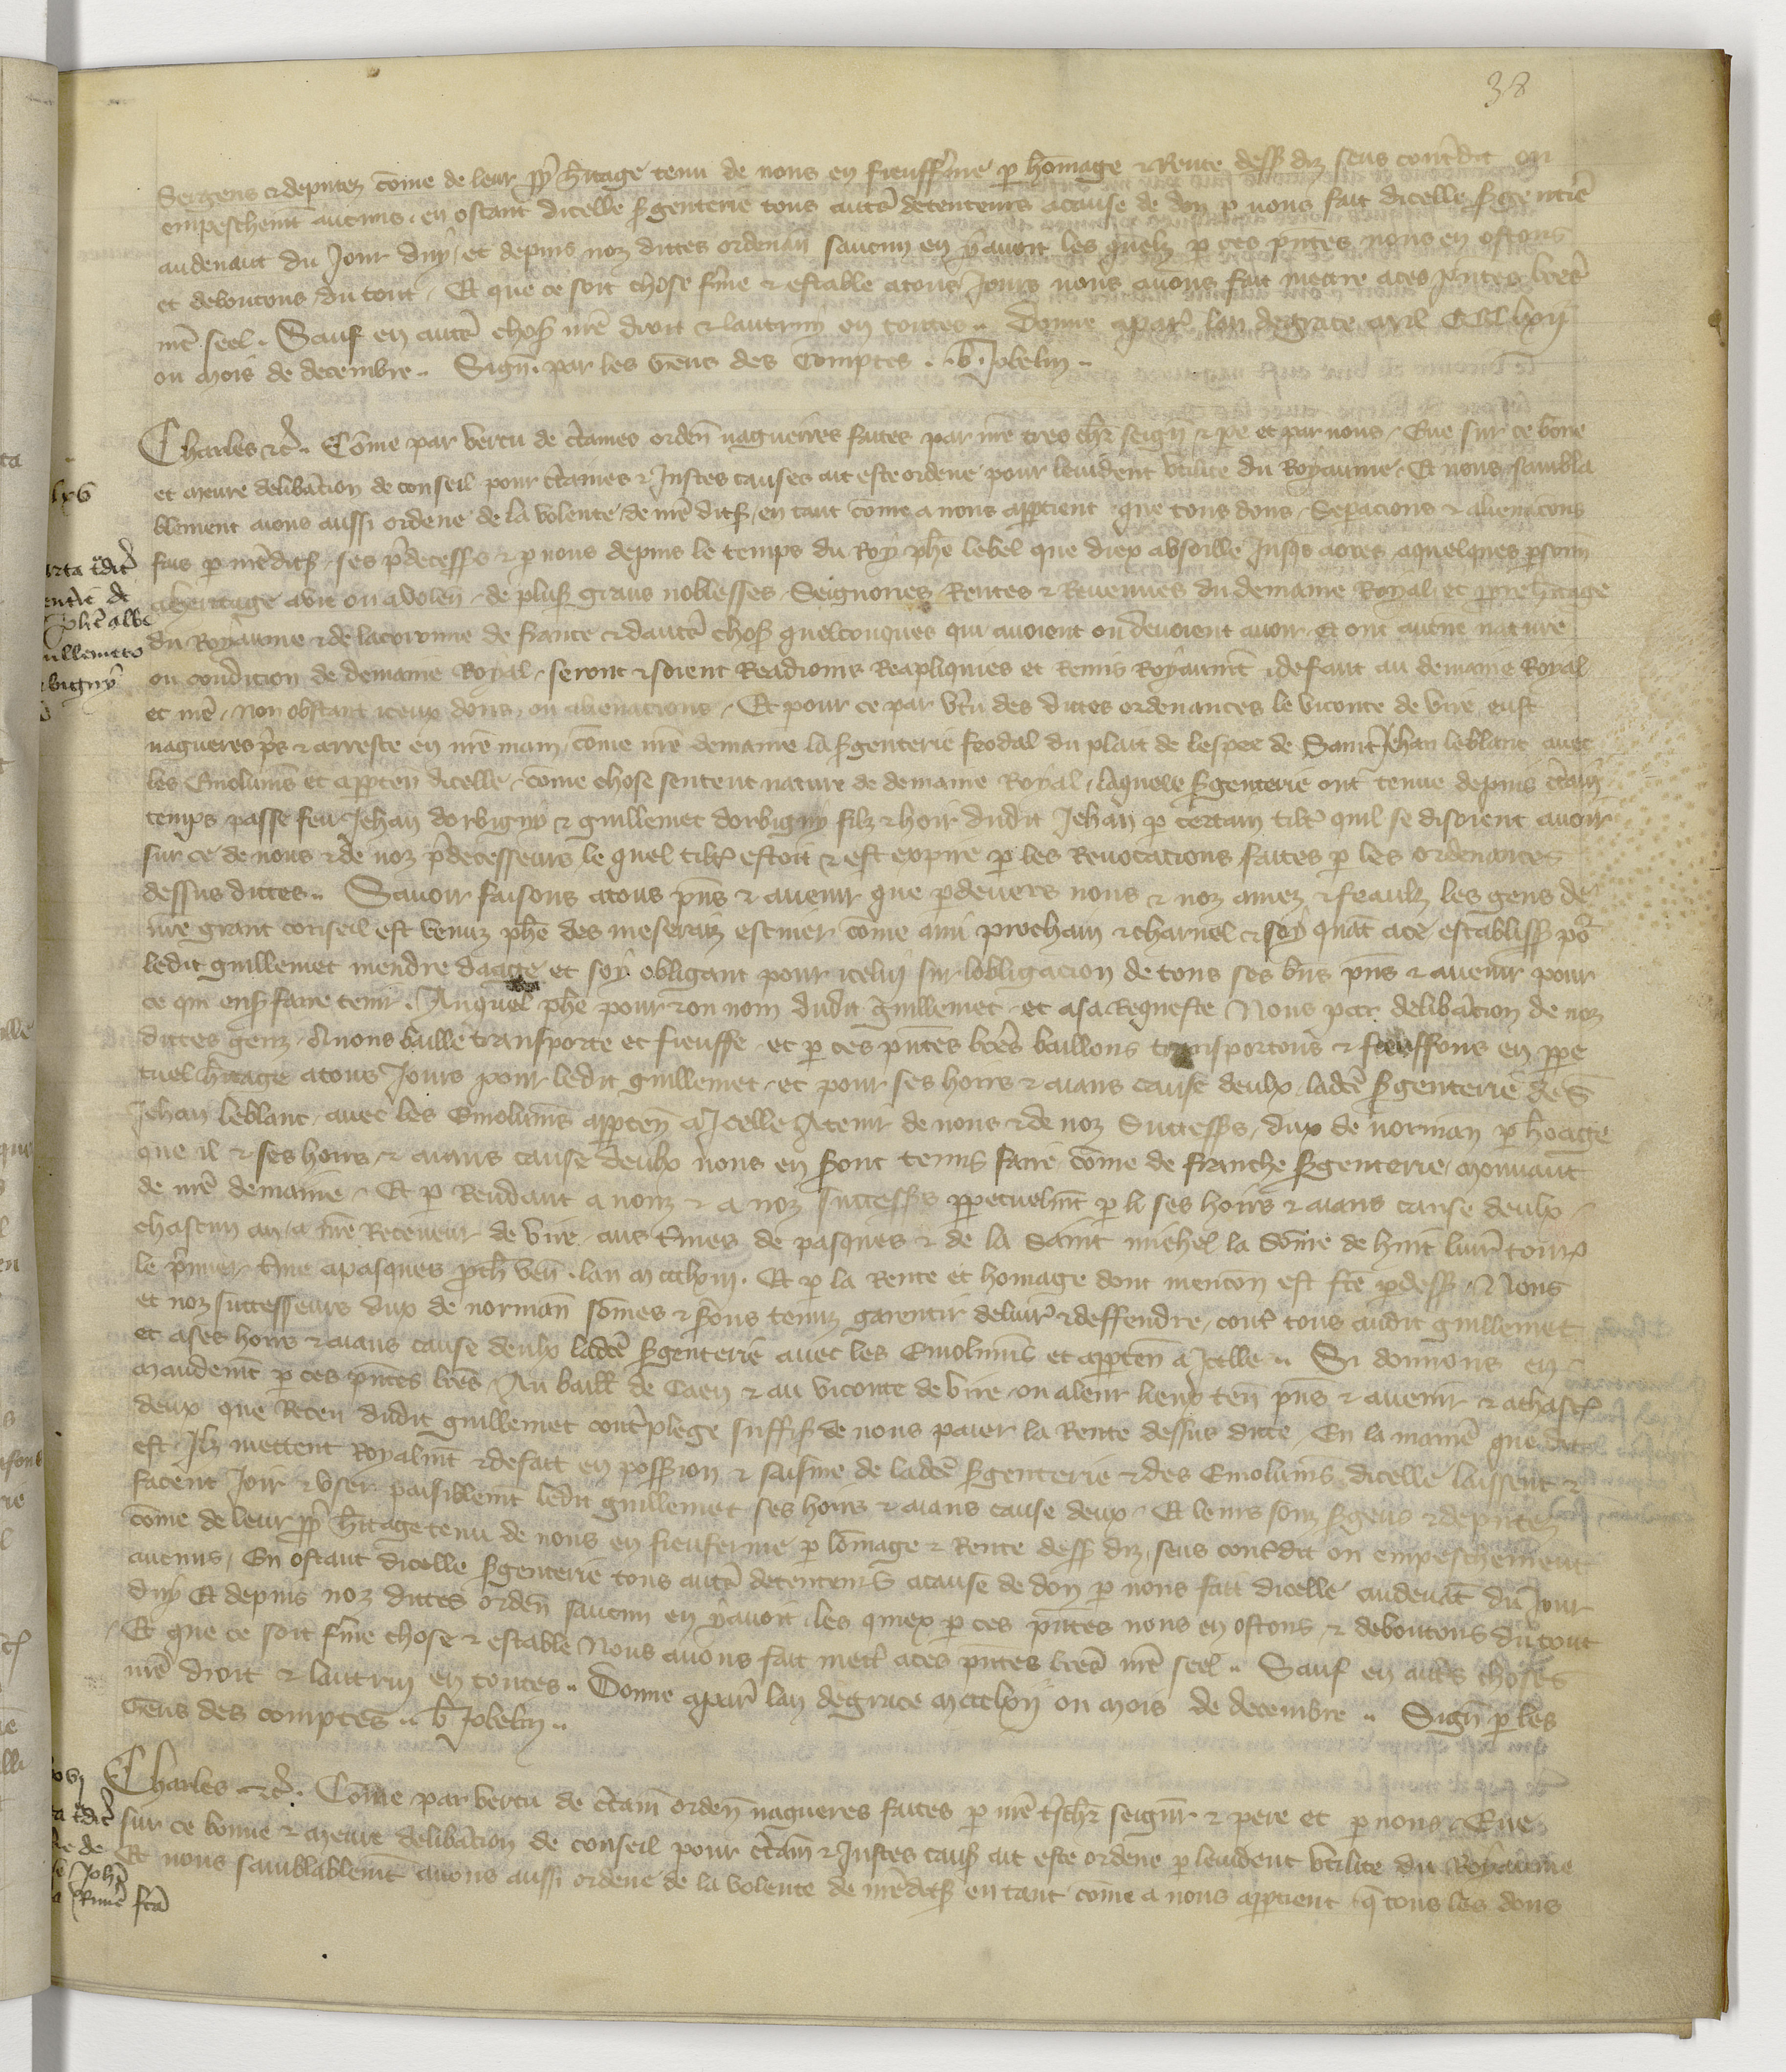 38
Sergens & deputez cõme de leur pp̃ h̃itage tenu de nous en fieufferme p hõmage & Rente dess diz sens cont̃dit ou
empeschemt aucuns. en ostant dicelle s̃genterie tous aut̃s detenteurs acause de don p nous fait dicelle s̃genterie
audeuant du Jour duy, et depuis noz dittes ordenan̄ saucun en y auoit les quelz p ces p̃ntes nous en ostons
et deboutons du tout. Et que ce soit chose ferme & estable atous Jours nous auons fait mettre aces p̃ntes lr̃es
nr̃e seel. Sauf en aut̃s chos nr̃e droit & lautruy en toutes. Donne apar̃ lan de grace mil CCC lxij
ou mois de decembre. Sign̄. par les Gens des Comptes. b. Jobelin.
Charles &c̃. Cõme par vertu de c̃taines orden̄ naguerres faites par nr̃e tres ch̃r seign̄ & pe et par nous, Eue sur ce bonne
et meure delibãcion de conseil pour c̃taines & Justes causes ait este ordene pour leuident vtilite du Royaume, Et nous sambla
blement aions aussi ordene de la volente de nr̃e dits, en tant cõme a nous app̃tient que tous dons, Sepacions & alienacõns
fais p nr̃edits, ses p̃decess̃s & p nous depuis le temps du Roy ph̃e lebel que diex absoille Jusqs aores aquelques p̃sonn̄
aheritage auie ou auolen̄ de plus̃ grans noblesses, Seignories, Rentes & Reuenues du demaine Royal, et pp̃re h̃itage
du Royaume & de lacoronne de france & daut̃s chos̃ quelconques qui auoient ou deuoient auoir et ont aucune nature
ou condicion de demaine Royal, seront & soient Readioins Reapliquies et Remis Royaumt̃ & defait au demaine Royal
et nr̃e, non obstant iceux dons ou alienacions, Et pour ce par v̄tu des dittes ordenances le viconte de vire eust
nagueres p̃s & arreste en nr̃e main, cõme nr̃e demaine la s̃genterie feodal du plait de lespee de Saint Jehan leblanc auec
les Emolumẽs et apptẽn dicelle, cõme chose sentent nature de demaine Royal, laquele s̃genterie ont tenue depuis c̃tain
temps passe feu Jehan dorbigny & guillemet dorbigny filz & hoir dudit Jehan p certain tilt̃e quil se disoient auoir
sur ce de nous & de noz p̃decesseurs, le quel tilt̃e estoit & est expire p les Reuocations faites p les ordenances
dessus dittes. Sauoir faisons atous p̃ns & auenir que p̃deuers nous & noz amez & feaulz les gens de
nr̃e grant conseil est venuz ph̃e des meserez escuier cõme ami prochain & charnel & soy quãt ace establiss̃ po̲r̲
ledit guillemet mendre daage et soy obligant pour icelui sur lobligacion de tous ses biẽs p̃ns & auenir pour
ce qui ens̃ faire tenir. Auquel ph̃e pour & on nom dudit Guillemet, et asa Requeste Nous par delibãcion de noz
dittes genz, Auons baille transporte et fieuffe, et p ces p̃ntes lr̃es baillons transportons & fieuffons en ppe
tuel h̃itage atous Jours pour ledit guillemet, et pour ses hoirs & aians cause deulx, ladc̃e s̃genterie de S
Jehan leblanc auec les Emolumẽs apptẽn a Jcelle Atenir de nous & de noz Success̃s, dux de norman̄ p hõage
que il & ses hoirs & aians cause deulx nous en s̃ont tenus faire cõme de franche s̃genterie, mouuant
de nr̃e demaine, Et p Rendant a nous & a noz Success̃s ppetuelmt̃ p li ses hoirs & aians cause deulx,
chascun an, a nr̃e Receueur de vire, aus t̃mes de pasques & de la Saint michel la sõme de huit liur̃ tourñ
le p̃mier t̃me apasques p̃ch̃ ven̄. lan mccclxiij. Et p la Rente et homage dont mencõn est fc̃e p̃dess̃ Nous
et noz successeurs dux de norman̄ sõmes & s̃ons tenuz garentir deliur̃ & deffendre, cont̃ tous audit guillemet
et ases hoirs & aians cause deulx ladc̃e s̃genterie auec les Emolumẽs et apptẽn a Jcelle. Si donnons en
mandemt̃ p ces p̃ntes lr̃es, Au baill̃ de Caen & au viconte de vire, ou aleur lieux ten̄ p̃ns & auenir & achasc̃
deux que Receu dudit guillemet cont̃plege suffis̃ de nous paier la Rente dessus ditte, En la manie̲r̲e que dit
est Jlz mettent Royalmt̃ & defait en poss̃ion & saisine de ladc̃e s̃genterie & des Emolumẽs dicelle laissent &
facent Joir & vser paisiblemt̃ ledit guillemet, ses hoirs & aians cause deux, Et leurs soubz s̃gens & deputez
cõme de leur pp̃ h̃itage tenu de nous en fieuferme p hõmage & Rente dess̃ diz, sens cont̃dit ou empeschement
aucuns, En ostant dicelle s̃genterie tous aut̃s detenteurs acause de don p nous fait dicelle audeuãt du Jour
duy Et depuis noz dittes orden̄ saucun en y auoit, les quiex p ces p̃ntes nous en ostons & deboutons du tout
Et que ce soit ferme chose & estable Nous auons fait mett̃ aces p̃ntes lr̃es nr̃e seel. Sauf en aut̃s choses
nr̃e droit & lautruy en toutes. Donne apar̃ lan de grace mccclxij ou mois de decembre. Sign̄ p les
Gens des comptes. b Jobelin.
Charles &c̃. Cõme par vertu de c̃tain̄ orden̄ nagueres faites p nr̃e t̃sch̃r seign̄r & pere et p nous, Eue
sur ce bonne & meure delibãcion de conseil pour c̃tain̄ & Justes caus̃ ait este ordene p leuident vtilite du Royaume
Et nous samblablemt̃ auons aussi ordene de la volente de nr̃edits̃ en tant cõme a nous app̃tient q̃ tous les dons